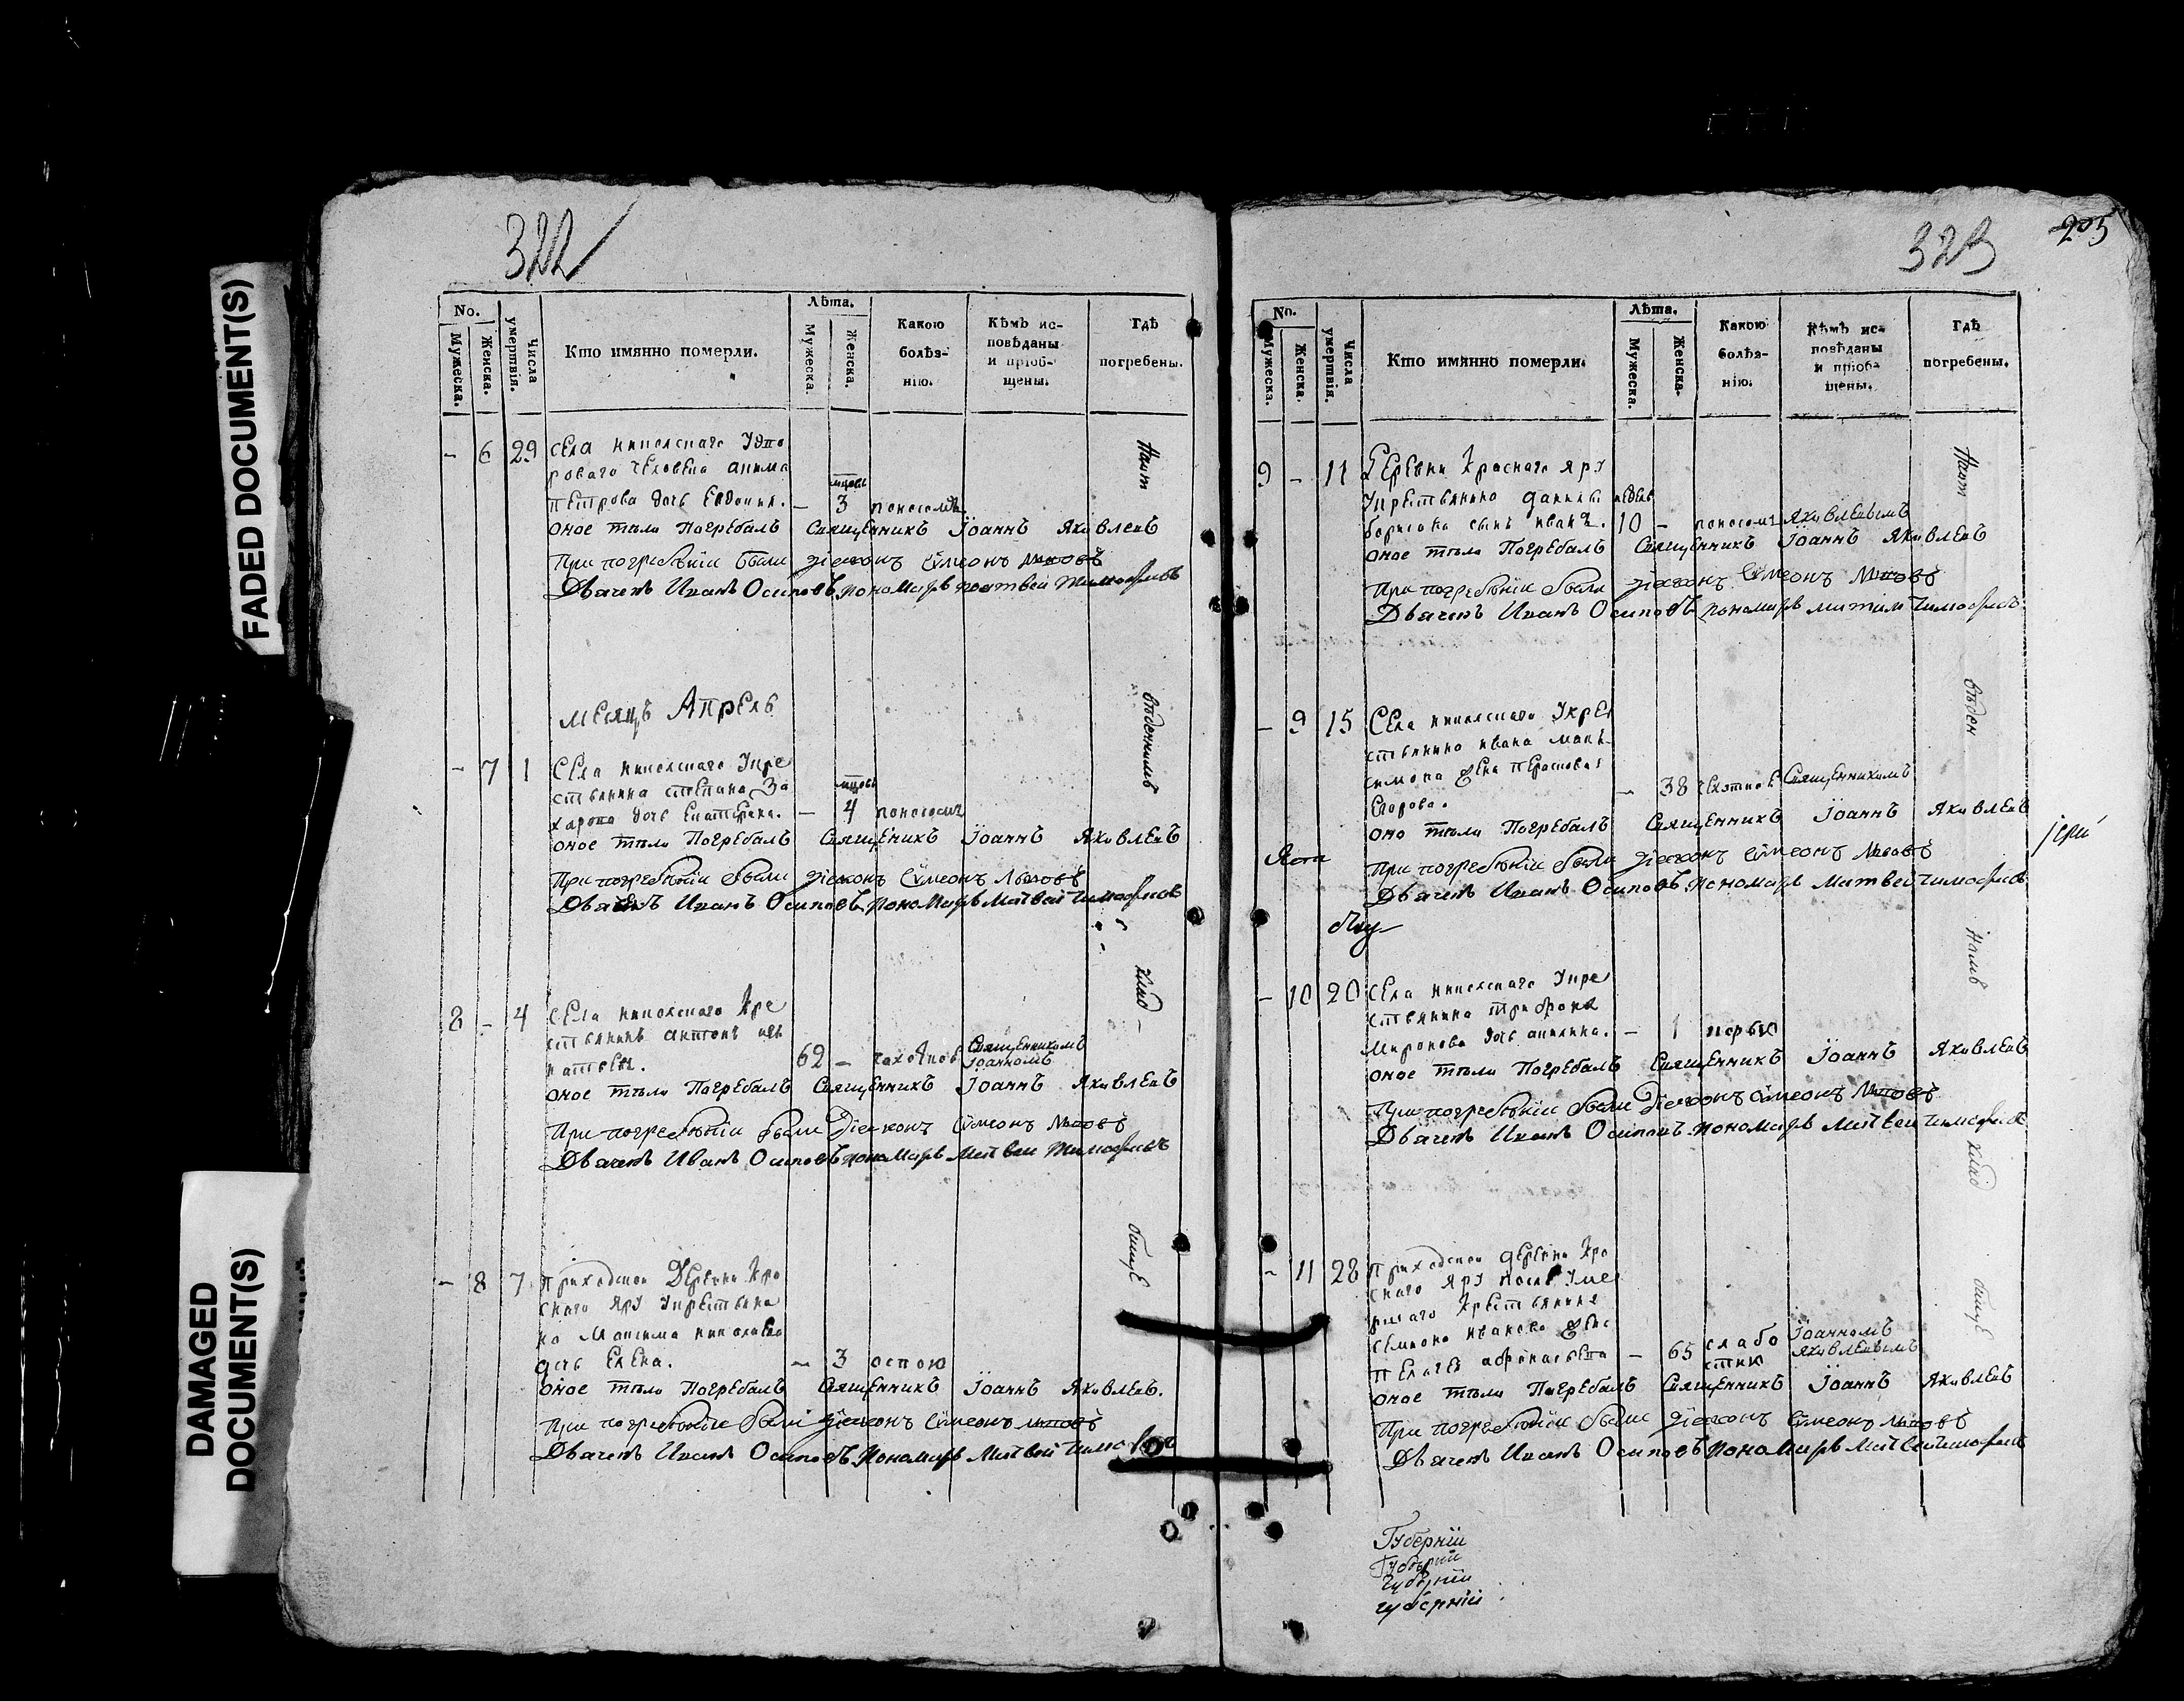 FADED DOCUMENT(S)
DAMAGED
DOCUMENT(S)
322
No.
Мужеска.
Женска.
Числа
умертвія.
Кто имянно померли.
Лѣта.
Мужеска.
Женска.
Какою
болѣз-
нію.
Кѣмъ ис-
повѣданы
и пріоб-
щены.
Гдѣ
погребены.
- 6 29 села никольскаго Удво
роваго человека акима
петрова дочь Евдокия. - 3 поносомъ
оное тѣло Погребалъ Священникъ Іоаннъ Яковлевъ
При погребѣніи были діаконъ Сумеонъ
Дьячекъ Иванъ Осиповъ пономарь матвей Тимофѣевъ
Месяцъ Апрель
- 7 1 Села никольскаго Укре
стьянина степана За
харова дочь Екатерина. - 4 поносомъ
оное тѣло Погребалъ Священикъ Іоаннъ Яковлевъ
При погребѣніи были діаконъ Сумеонъ
Дьячекъ Иванъ Осиповъ пономарь Матвей Тимофѣевъ
8 - 4 Села никольскаго Кре
стьянинъ антонъ
62 - Священникомъ
Іоанномъ
оное тѣло Погребалъ Священникъ Іоаннъ Яковлевъ
При погребѣніи были Діаконъ Сумеонъ
Дьячекъ Иванъ Осиповъ пономарь Матвеи Тимофѣевъ
- 8 7 Приходской Деревни Кра
снаго Яру Укрестьяни
на Максима николаева
дочь Елена. - 3 оспою
оное тѣло Погребалъ Священникъ Іоаннъ Яковлевъ.
При погребѣніи были діаконъ Сумеонъ
Дьячекъ Иванъ Осиповъ. Пономарь Матвей
323
205
No.
Мужеска.
Женска.
Числа
умертвія.
Кто имянно померли.
Лѣта.
Мужеска.
Женска.
Какою
болѣз-
нію.
Кѣмъ ис-
повѣданы
и пріоб-
щены.
Гдѣ
погребены.
9 - 11 Деревни Краснаго яру
Укрестьянина данилы недель
борисова сынъ иванъ. 10 - поносомъ Яковлевымъ
оное тѣло Погребалъ Священникъ Іоаннъ Яковлевъ
При погребѣніи были діаконъ Сумеонъ
Дьячекъ Иванъ Осиповъ пономарь матвей Тимофѣевъ
- 9 15 Села никольскаго Укре
стьянина ивана мак
симова Жена
Егорова. - 38 Священникомъ
оно тѣло Погребалъ Священникъ Іоаннъ Яковлевъ
При погребѣніи были діаконъ Сумеонъ
Дьячекъ Иванъ Осиповъ пономарь Матвей Тимофѣевъ
- 10 20 Села никольскаго Укре
стьянина трифона
Миронова дочь акилина. - 1
оное тѣло Погребалъ Священникъ Іоаннъ Яковлевъ
При погребѣніи были Діаконъ Сумеонъ
Дьячекъ Иванъ Осиповъ пономарь Матвеи Тимофѣевъ
- 11 28 Приходской деревни Кра
снаго яру после Уме
ршаго Крестьянина
семиона иванова Жена
Пелагея афонасьева - 65 слабо
стию Іоанномъ
Яковлевымъ
оное тѣло Погребалъ Священникъ Іоаннъ Яковлевъ
При погребѣніи были діаконъ Сумеонъ
Дьячекъ Иванъ Осиповъ пономарь Матвей Тимофѣевъ
Губерніи
Губерніи
губерніи
губерніи